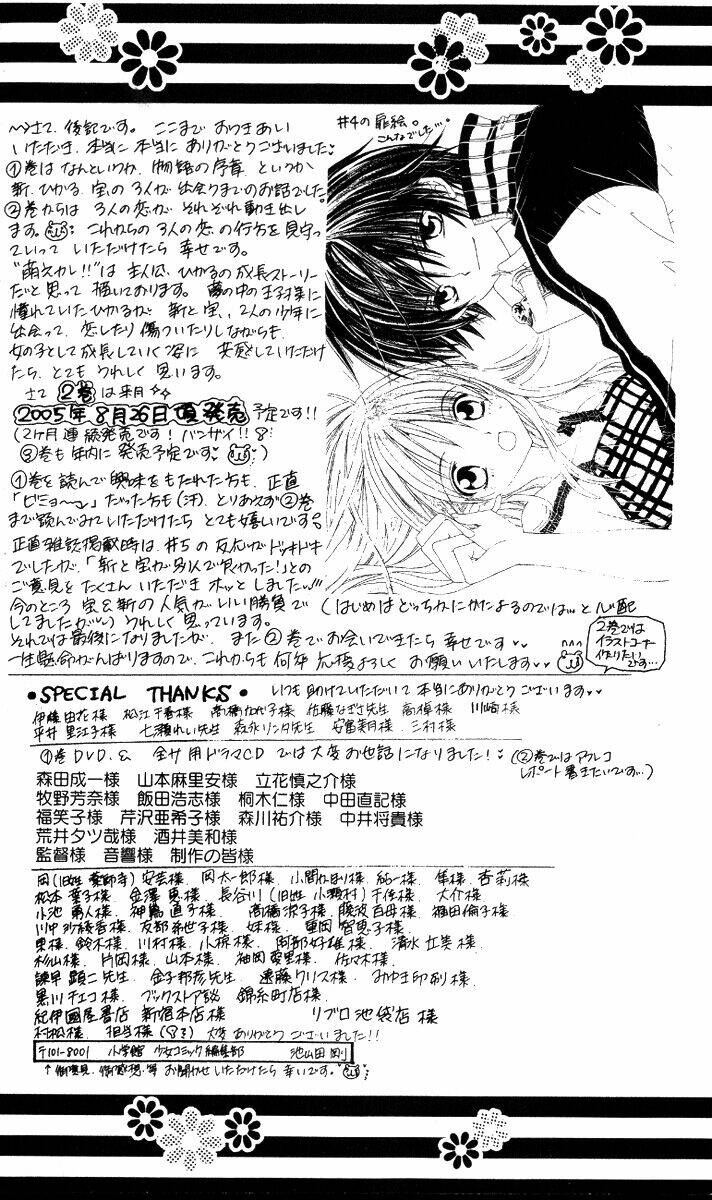 さて、後記です。ここまでおつきあい
いただき、本当に本当にありがとうございました
①巻はなんというか、物語の序章というか
新、ひかる、宝の3人が出会うまでのお話でした。
②巻からは3人の恋がそれぞれ動き出し
ます。これからの3人の恋の行方を見守っ
ていっていただけたら幸せです。
"萌えカレ!!"は主人公、ひかるの成長ストーリー
だと思って描いております。夢の中の王子様に
憧れていたひかるが新と宝、2人の少年に
出会って、恋したり傷ついたりしながらも、
女の子として成長していく姿に共感していただけ
たら、とてもうれしく思います。
さて2巻は来月
2005年8月26日頃発売予定です!!
(2ヶ月連続発売です!バンザイ!!
③巻も年内に発売予定です)
①巻を読んで興味をもたれた方も、正直
「ビミョ〜」だった方も(汗)、とりあえず②巻
まで読んでみていただけたらとても嬉しいです。
正直雑誌掲載時は、#5の反応がドッキドキ
でしたが、「新と宝が別人で良かった!」との
ご意見をたくさんいただきホッとしました
今のところ宝&新の人気がいい勝負で(はじめはどっちかにかたよるのでは…と心配
してましたが)うれしく思っています。
それでは最後になりましたが、また②巻でお会いできたら幸せです
一生懸命がんばりますので、これからも何卒応援よろしくお願いいたします
#4の扉絵。
こんなでした…。
2巻では
イラストコーナー
作りたい
です…
•SPECIAL THANKS• いつも助けていただいて本当にありがとうございます
伊藤由花様 松江千春様 高橋加代子様 佐藤なぎさ先生 高槁様 川崎様
平井里江子様 七瀬れい先生 森永リンタ先生 安富美月様 三村様
①巻DVD & 全サ用ドラマCDでは大変お世話になりました! (②巻ではアフレコ
レポート書きたいです…)
森田成一様 山本麻里安様 立花慎之介様
牧野芳奈様 飯田浩志様 桐木仁様 中田直記様
福笑子様 芹沢亜希子様 森川祐介様 中井将貴様
荒井夕ツ哉様 酒井美和様
監督様 音響様 制作の皆様
岡(旧姓 薬師寺)安芸様 岡太一郎様 純一様 隼様 杏莉様
松本葉子様 金澤恵様 長谷川(旧姓 小瀬村)千佳様 大介様
小池勇人様 神篤直子様 高橋涼子様 服波百母様 福田倫子様
川中沙綾香様 友部希世子様 妹様 重岡智恵子様
東様 鈴木様 川村様 小椋様 阿部好雄様 清水壮美様
杉山様 片岡様 山本様 袖岡愛里様 佐々木様
諫早顕二先生 金子邦彦先生 遠藤クリス様 みゆき印刷様
黒川チエコ様 ブックストア談 錦糸町店様
紀伊國屋書店 新宿本店様 リブロ池袋店様
村松様 担当様 大変ありがとうございました!!
〒101-8001 小学館 少女コミック編集部 池山田剛
↑御意見、御感想等お聞かせいただけたら幸いです。